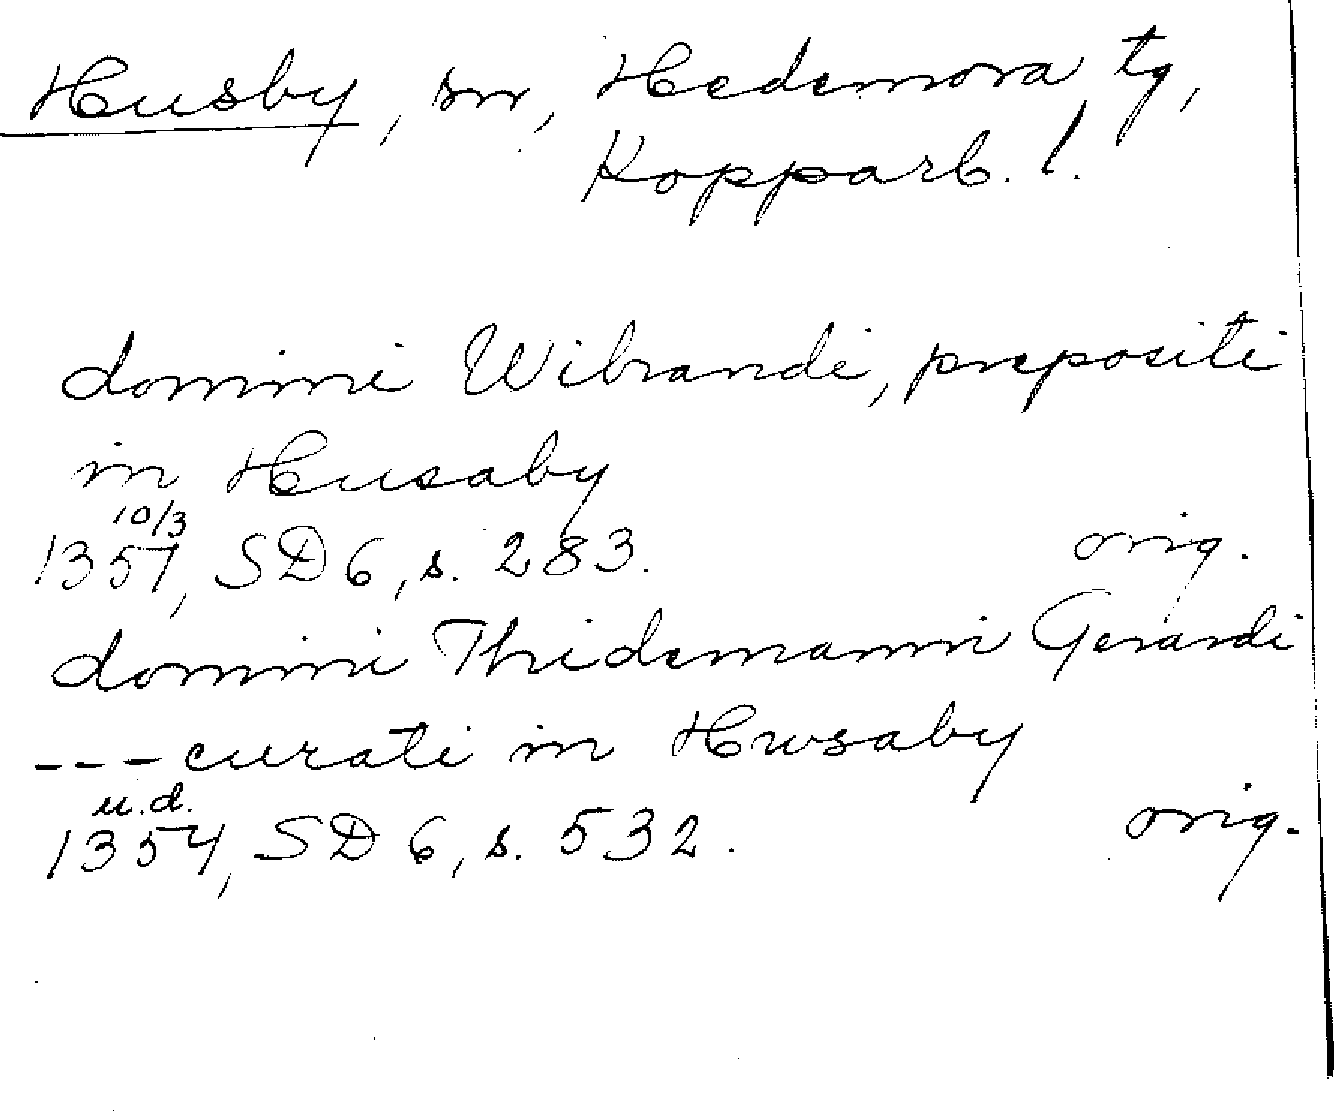 Husby, sn, Hedemora tg,
Kopparb. l.
domini Wibrandi, prepositi
in Husaby
10/3
1351, SD 6, s. 283. orig.
domini Thidemanni Gerardi
---curati in Hwsaby
u.d.
1354, SD 6, s. 532. orig.